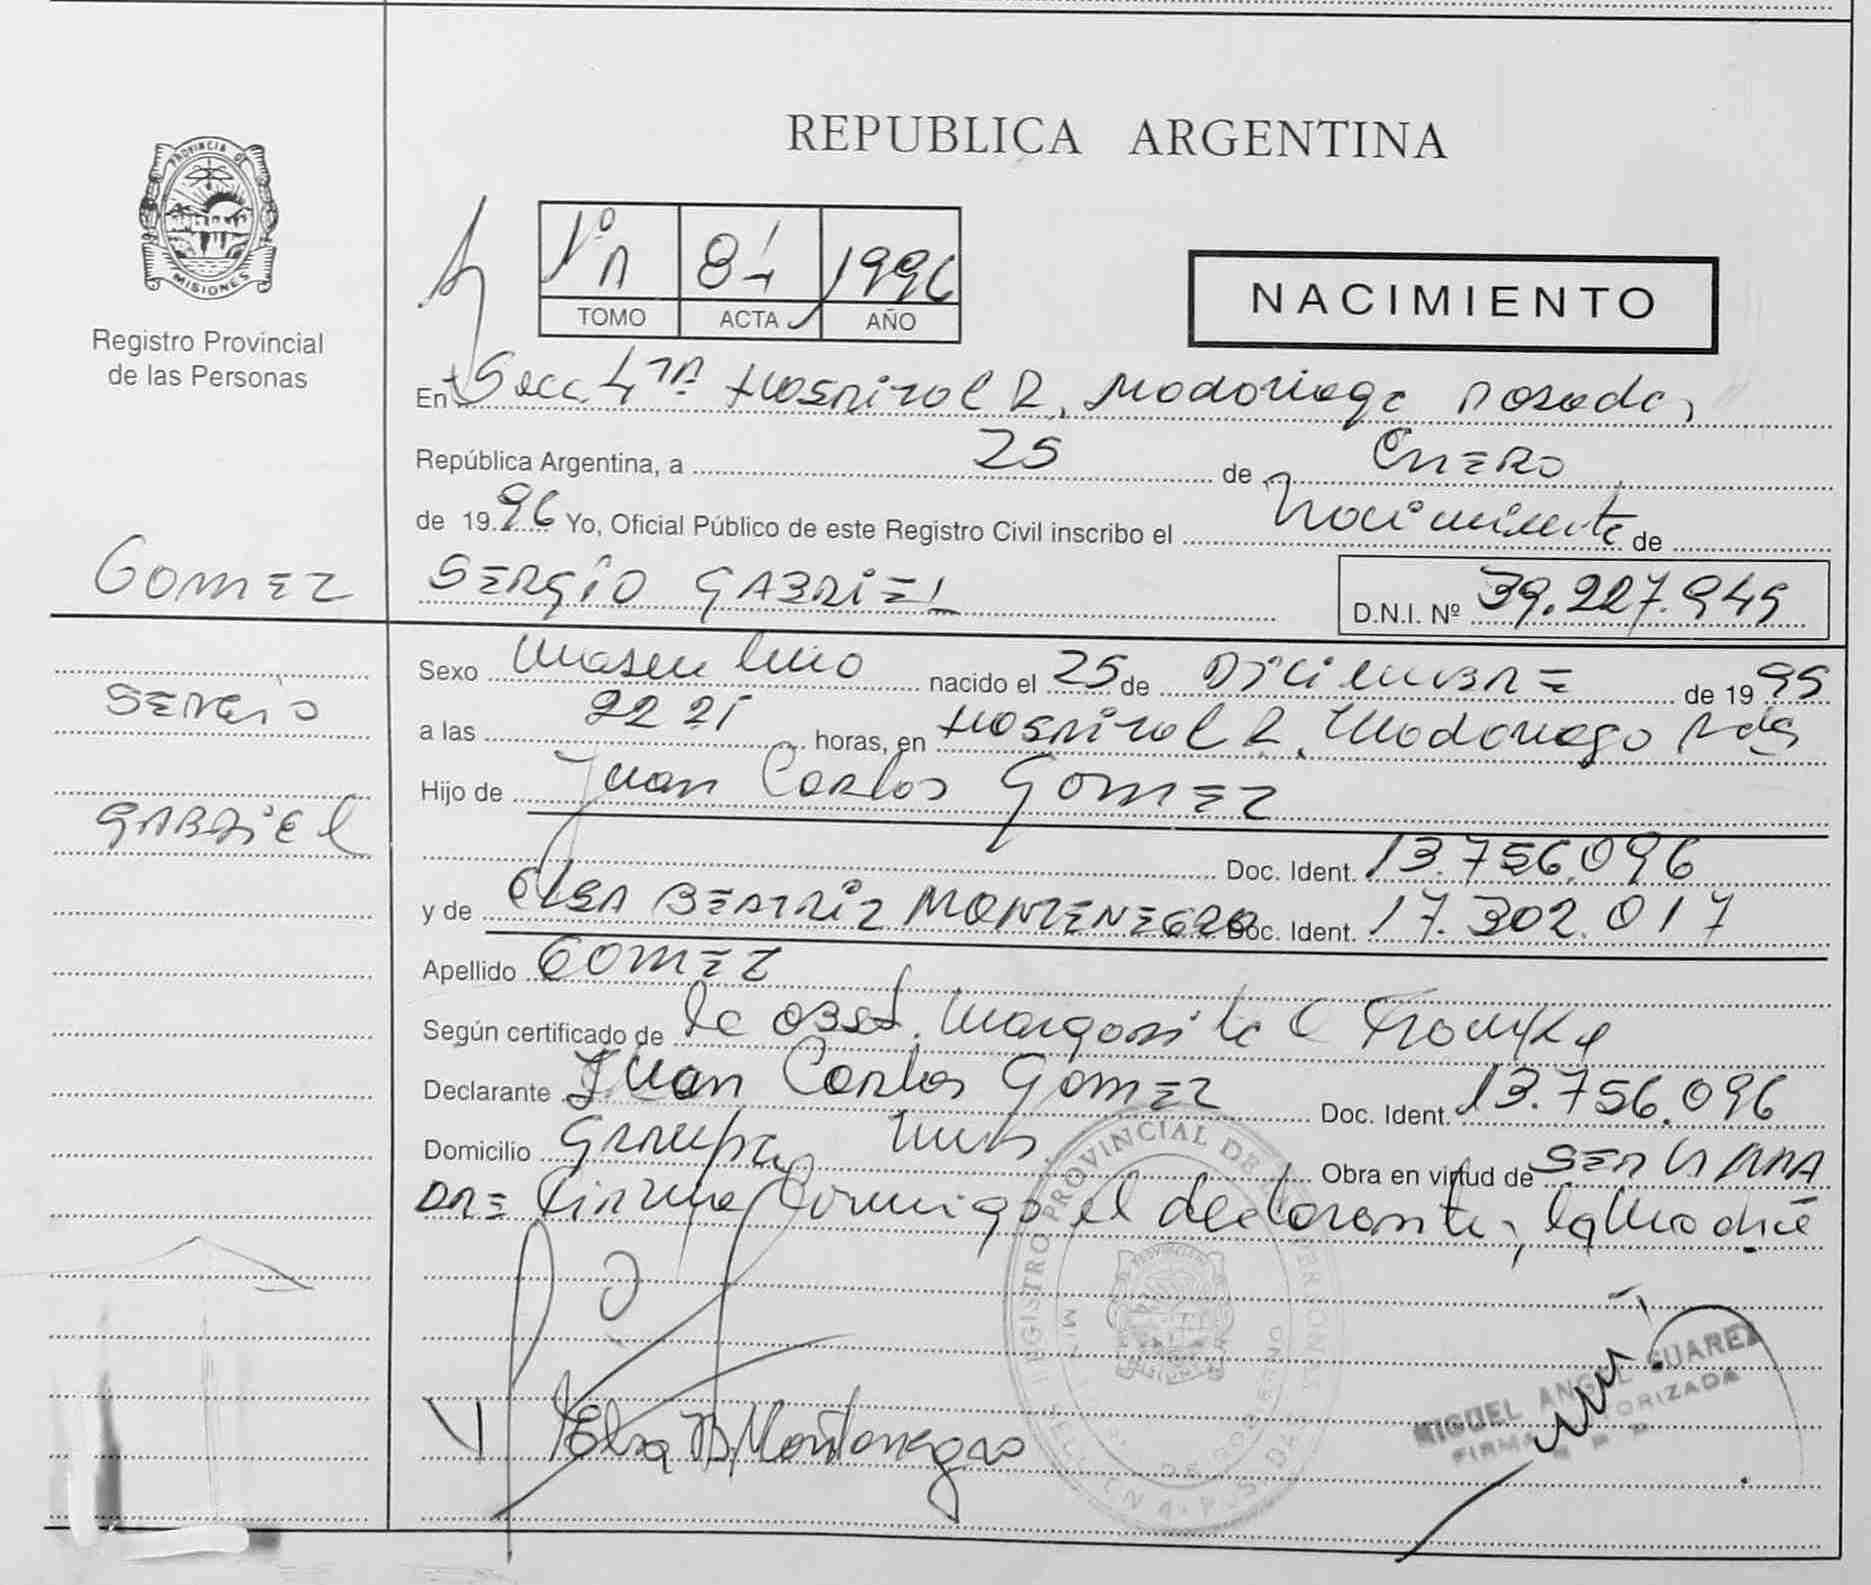 REPUBLICA ARGENTINA
PROVINCIA DE
MISIONES
Registro Provincial
de las Personas
1º A 84 1996
TOMO ACTA AÑO
NACIMIENTO
En Secc. 4ta Hospital R. Madariaga Posadas
República Argentina, a 25 de Enero
de 1996 Yo, Oficial Público de este Registro Civil inscribo el Nacimiento de
GOMEZ
SERGIO GABRIEL D.N.I. Nº 39.227.949
Sexo Masculino nacido el 25 de Diciembre de 1995
SERGIO
a las 22 21 horas, en Hospital R. Madariaga Pdas
Hijo de Juan Carlos Gomez
GABRIEL
Doc. Ident. 13.756.096
y de Elsa BEATRIZ MONTENEGRO Doc. Ident. 17.302.017
Apellido GOMEZ
Según certificado de la obst. Margarita C
Declarante Juan Carlos Gomez Doc. Ident. 13.756.096
Domicilio Garupa, Mnes. Obra en virtud de SER LA MA
DRE Firma conmigo el declarante, la Madre
Elsa B Montenegro
REGISTRO PROVINCIAL DE LAS PERSONAS
MIGUEL ANGEL SUAREZ
FIRMA AUTORIZADA